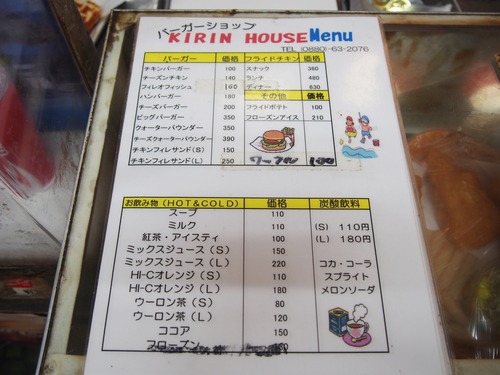 バーガーショップ
KIRIN HOUSE Menu
TEL (0880)-63-2076
バーガー 価格
チキンバーガー 100
チーズンチキン 140
フィレオフィッシュ 160
ハンバーガー 180
チーズバーガー 200
ビッグバーガー 350
クォーターパウンダー 350
チーズクォーターパウンダー 390
チキンフィレサンド(S) 150
チキンフィレサンド(L) 250
フライドチキン 価格
スナック 360
ランチ 480
ディナー 630
その他 価格
フライドポテト 100
フローズンアイス 210
ワッフル 100
お飲み物(HOT&COLD) 価格
スープ 110
ミルク 110
紅茶・アイスティ 100
ミックスジュース(S) 150
ミックスジュース(L) 220
HI-Cオレンジ(S) 110
HI-Cオレンジ(L) 180
ウーロン茶(S) 80
ウーロン茶(L) 120
ココア 150
フローズン
炭酸飲料
(S) 110円
(L) 180円
コカ・コーラ
スプライト
メロンソーダ